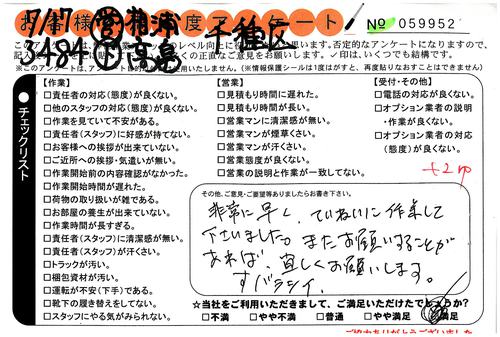 7/17 ㊂相浦 千種区
3484 髙島
お客様満足度アンケート
No 059952
否定的なアンケートになりますので、
印は、いくつでも結構です。
※このアンケートは、
(※情報保護シールは1度はがすと、再度貼りなおすことはできません)
チェックリスト
【作業】
□責任者の対応(態度)が良くない。
□他のスタッフの対応(態度)が良くない。
□作業を見ていて不安がある。
□責任者(スタッフ)に好感が持てない。
□お客様への挨拶が出来ていない。
□ご近所への挨拶・気遣いが無い。
□作業開始前の内容確認がなかった。
□作業開始時間が遅れた。
□荷物の取り扱いが雑である。
□お部屋の養生が出来ていない。
□作業時間が長すぎる。
□責任者(スタッフ)に清潔感が無い。
□責任者(スタッフ)が汗くさい。
□トラックが汚い。
□梱包資材が汚い。
□運転が不安(下手)である。
□靴下の履き替えをしてない。
□スタッフにやる気がみられない。
【営業】
□見積もり時間に遅れた。
□見積もり時間が長い。
□営業マンに清潔感が無い。
□営業マンが煙草くさい。
□営業マンが汗くさい。
□営業態度が良くない。
□営業の説明と作業が一致してない。
【受付・その他】
□電話の対応が良くない。
□オプション業者の説明
・作業が良くない。
□オプション業者の対応
(態度)が良くない。
+2np
その他、ご意見・ご要望等ありましたらお書き下さい。
非常に早く、ていねいに作業して
下さいました。またお願いすることが
あれば、宜しくお願いします。
すバラシイ。
☆当社をご利用いただきまして、ご満足いただけたでしょうか?
□不満 □やや不満 □普通 □やや満足 満足
ご協力ありがとうございました